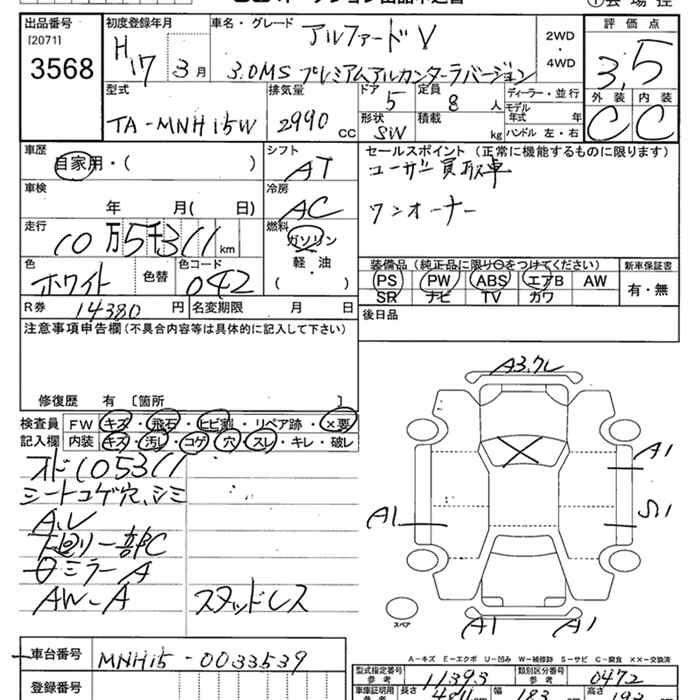 出品番号
[2071]
3568
初度登録年月
H17 3月
車名・グレード
アルファードV
3.0MS プレミアムアルカンターラバージョン
2WD
・
4WD
評価点
3.5
外装 内装
C C
型式
TA-MNH15W
排気量
2990 CC
ドア
5
形状
SW
定員
8 人
積載
kg
ディーラー・並行
モデル
年式 年
ハンドル 左・右
車歴
自家用・( )
シフト
AT
セールスポイント (正常に機能するものに限ります)
ユーザー買取車
ワンオーナー
車検
年 月( 日)
冷房
AC
走行
10万5千311km
燃料
ガソリン
軽・油
( )
色
ホワイト
色替
色コード
042
装備品 (純正品に限り○をつけてください)
PS PW ABS エアB AW
SR ナビ TV カワ
新車保証書
有・無
R券 14380円
名変期限 月 日
後日品
注意事項申告欄(不具合内容等は具体的に記入して下さい)
修復歴 有 〔箇所 〕
検査員
記入欄
FW キズ・飛石・ヒビ割・リペア跡・×要
内装 キズ・汚レ・コゲ・穴・スレ・キレ・破レ
オド105311
シートコゲ穴、シミ
A、レ
下廻リ一部C
ミラーA
AW-A スタッドレス
A3.7レ
A1
A1
A1
A1
スペア
A-キズ E-エクボ U-凹み W-補修跡 S-サビ C-腐食 ××-交換済
車台番号
MNH15-0033539
登録番号
型式指定番号
参考
11393
類別区分番号
参考
0472
車庫証明用
参考
長さ
幅
183
高さ
193